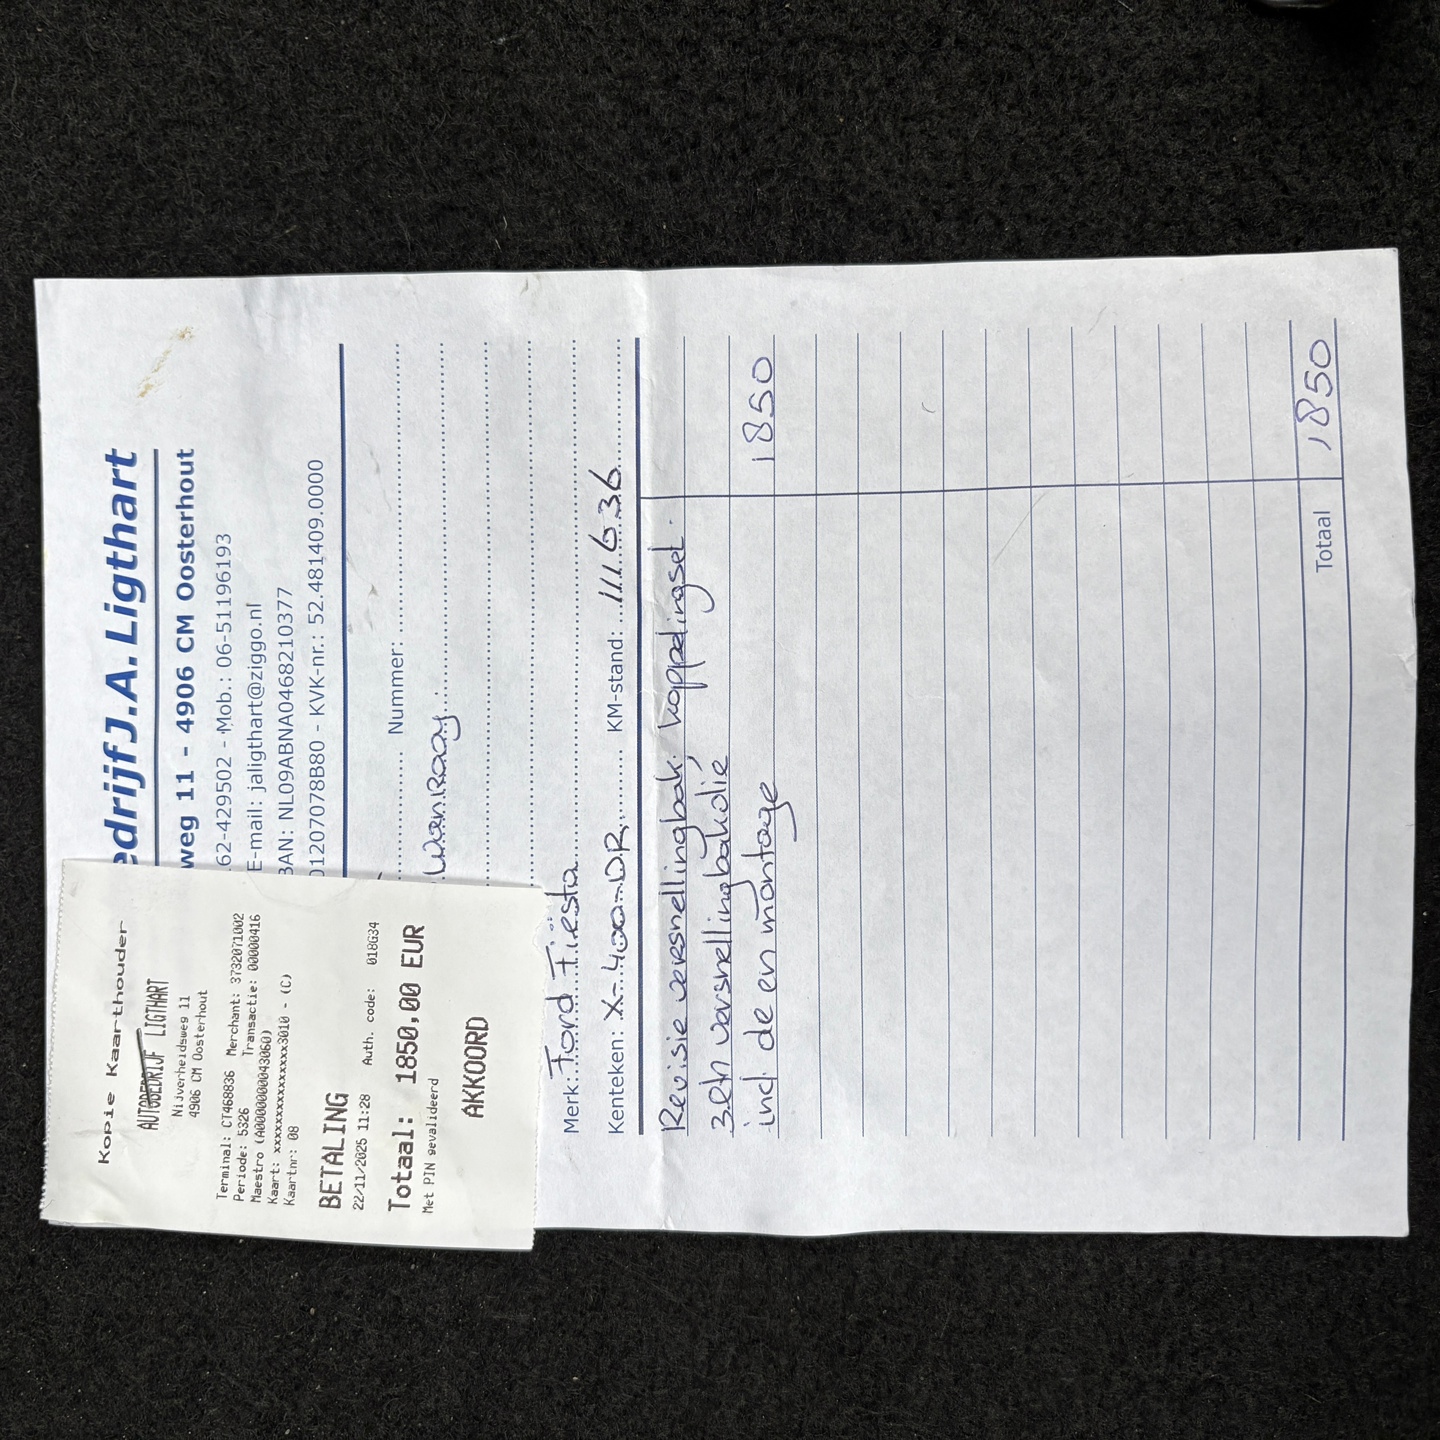 Kopie Kaarthouder
AUTOBEDRIJF LIGTHART
Nijverheidsweg 11
4906 CM Oosterhout
Terminal: CT468836 Merchant: 3732071002
Periode: 5326 Transactie: 00000416
Maestro (A0000000043060)
Kaart: xxxxxxxxxxxxxxx3010 - (C)
Kaartnr: 08
BETALING
22/11/2025 11:28 Auth. code: 018G34
Totaal: 1850,00 EUR
Met PIN gevalideerd
AKKOORD
edrijf J.A. Ligthart
weg 11 - 4906 CM Oosterhout
62-429502 - Mob.: 06-51196193
E-mail: jaligthart@ziggo.nl
BAN: NL09ABNA0468210377
01207078B80 - KVK-nr.: 52.481409.0000
Nummer:
Merk: Ford Fiësta
Kenteken: X-400-DR KM-stand: 111.636
Revisie versnellingbak, koppelingset.
versnellingbakolie
incl de en montage 1850
Totaal 1850